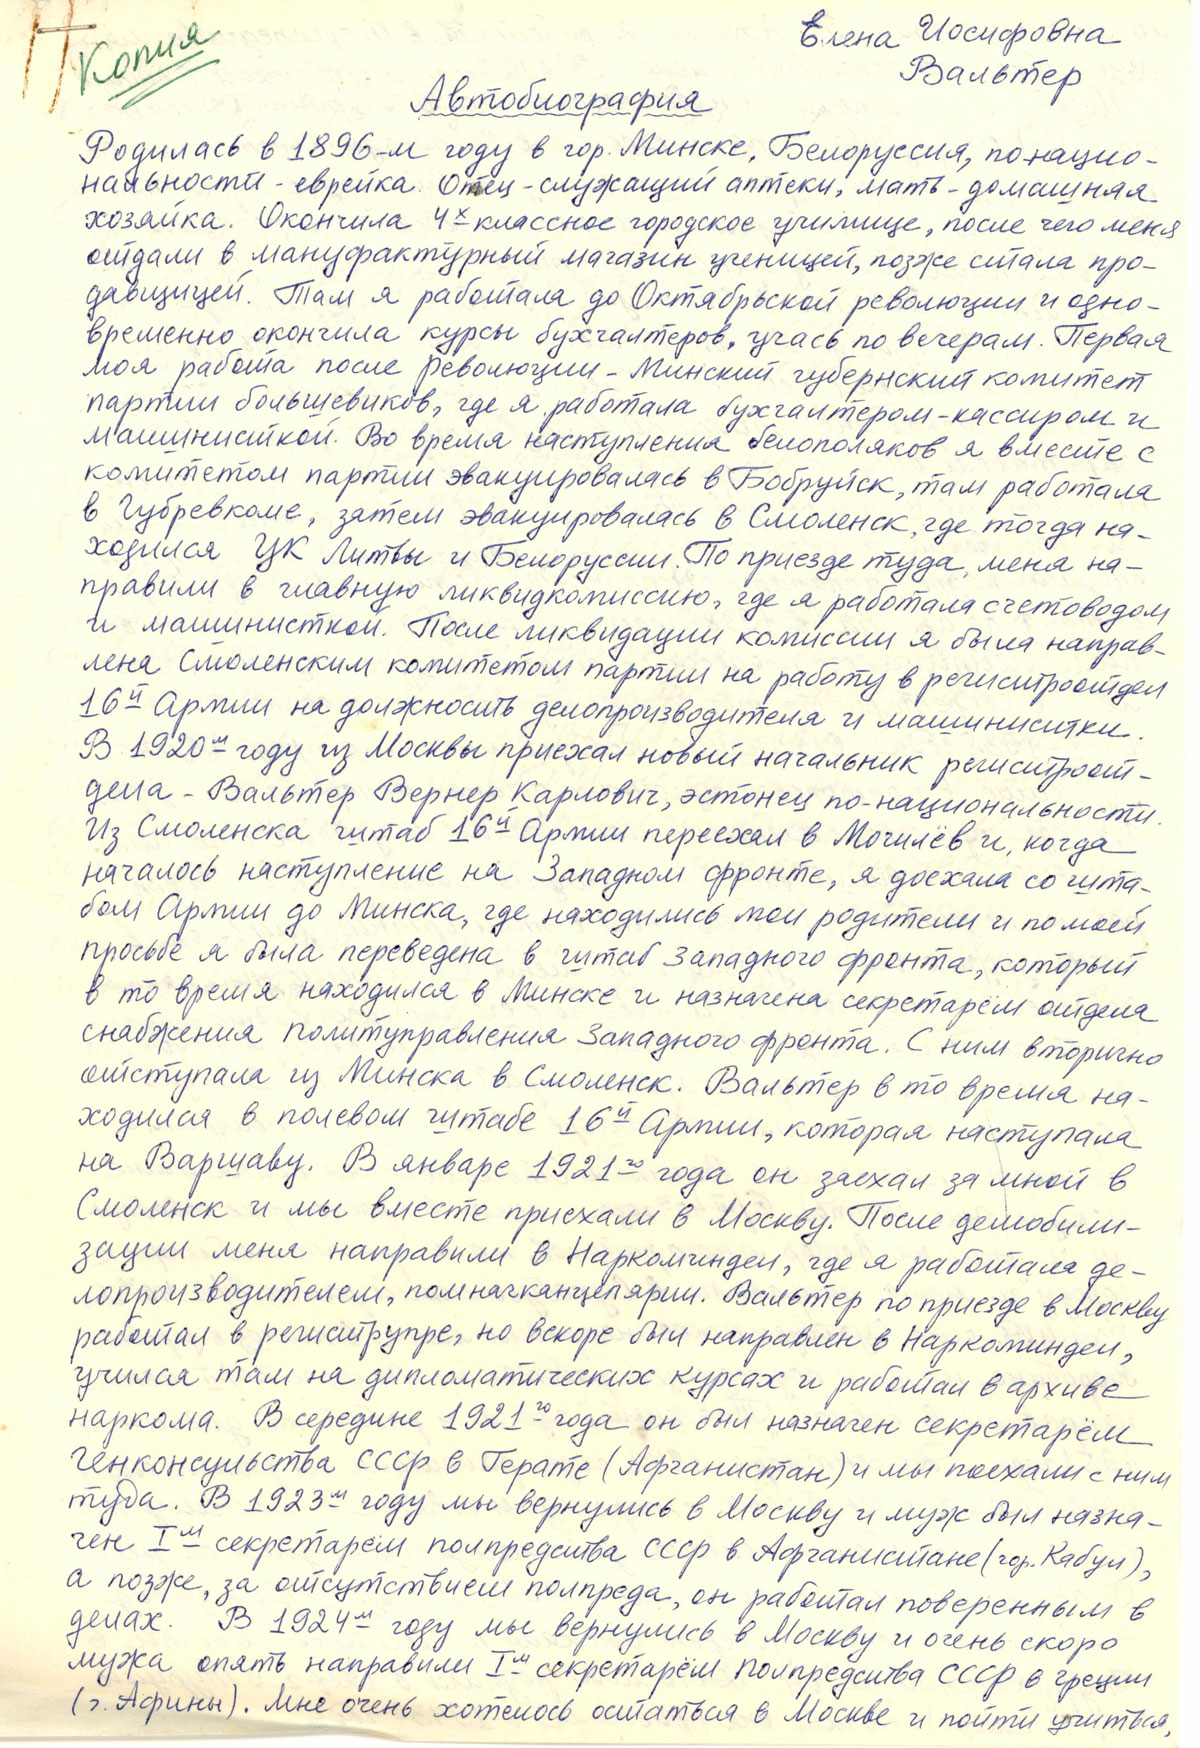 Копия
Елена Иосифовна
Вальтер
Автобиография
Родилась в 1896-м году в гор. Минске, Белоруссия, по нацио-
нальности - еврейка. Отец - служащий аптеки, мать - домашняя
хозяйка. Окончила 4х классное городское училище, после чего меня
отдали в мануфактурный магазин ученицей, позже стала про-
давщицей. Там я работала до Октябрьской революции и одно-
временно окончила курсы бухгалтеров, учась по вечерам. Первая
моя работа после Революции - Минский губернский комитет
партии большевиков, где я работала бухгалтером-кассиром и
машинисткой. Во время наступления белополяков я вместе с
комитетом партии эвакуировалась в Бобруйск, там работала
в Губревкоме, затем эвакуировалась в Смоленск, где тогда на-
ходился ЦК Литвы и Белоруссии. По приезде туда, меня на-
правили в главную ликвидкомиссию, где я работала счетоводом
и машинисткой. После ликвидации комиссии я была направ-
лена Смоленским комитетом партии на работу в региструотдел
16й Армии на должность делопроизводителя и машинистки.
В 1920м году из Москвы приехал новый начальник региструот-
дела - Вальтер Вернер Карлович, эстонец по-национальности.
Из Смоленска штаб 16й Армии переехал в Могилёв и, когда
началось наступление на Западном фронте, я доехала со шта-
бом Армии до Минска, где находились мои родители и по моей
просьбе я была переведена в штаб Западного фронта, который
в то время находился в Минске и назначена секретарём отдела
снабжения Политуправления Западного фронта. С ним вторично
отступала из Минска в Смоленск. Вальтер в то время на-
ходился в полевом штабе 16й Армии, которая наступала
на Варшаву. В январе 1921го года он заехал за мной в
Смоленск и мы вместе приехали в Москву. После демобили-
зации меня направили в Наркоминдел, где я работала де-
лопроизводителем, помначканцелярии. Вальтер по приезде в Москву
работал в региструпре, но вскоре был направлен в Наркоминдел,
учился там на дипломатических курсах и работал в архиве
наркома. В середине 1921го года он был назначен секретарём
Генконсульства СССР в Герате (Афганистан) и мы поехали с ним
туда. В 1923м году мы вернулись в Москву и муж был назна-
чен Iм секретарём полпредства СССР в Афганистане (гор. Кабул),
а позже, за отсутствием полпреда, он работал поверенным в
делах. В 1924м году мы вернулись в Москву и очень скоро
мужа опять направили Iм секретарём Полпредства СССР в Греции
(г. Афины). Мне очень хотелось остаться в Москве и пойти учиться,